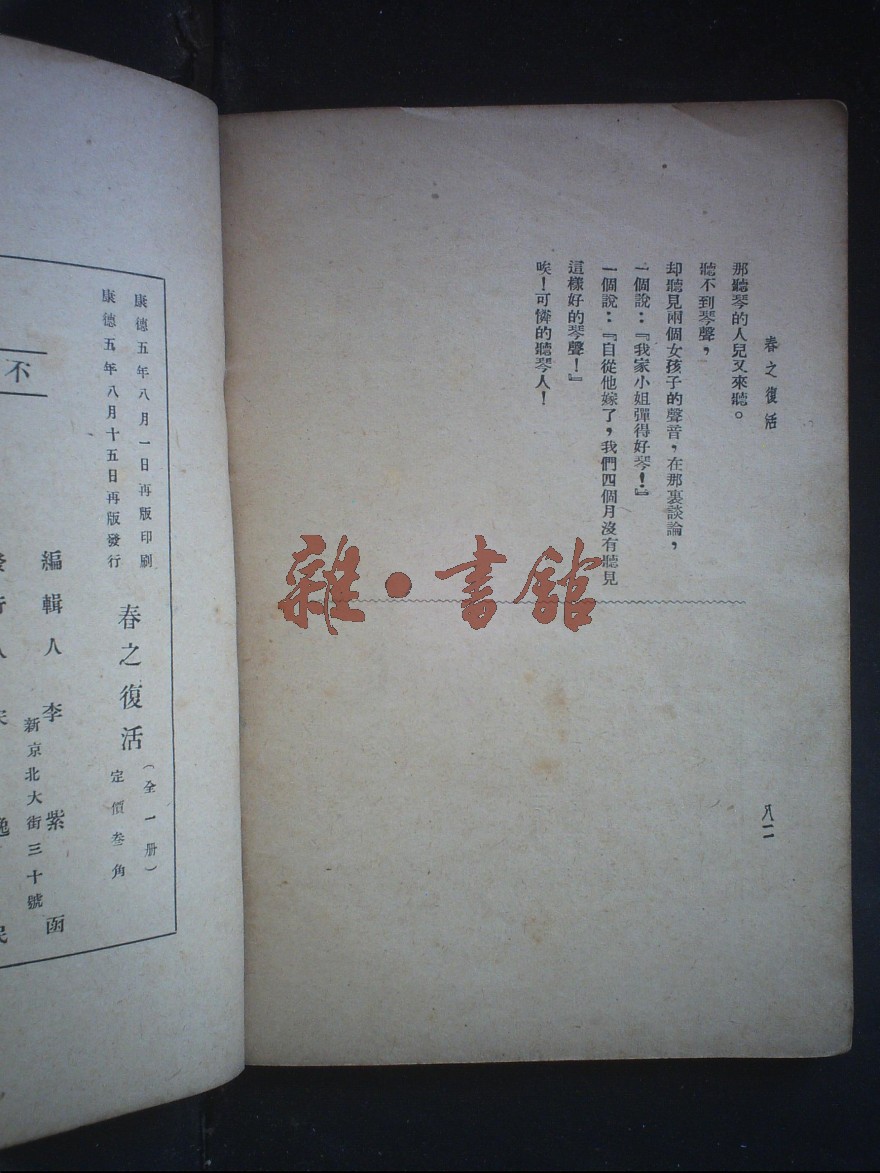 春之復活
那聽琴的人兒又來聽。
聽不到琴聲，
却聽見兩個女孩子的聲音，在那裏談論，
一個說：『我家小姐彈得好琴！』
一個說：『自從他嫁了，我們四個月沒有聽見
這樣好的琴聲！』
唉！可憐的聽琴人！
八二
雜·書館
康德五年八月一日再版印刷
康德五年八月十五日再版發行
春之復活（全一册）
定價叁角
編輯人 李紫函
新京北大街三十號
發行人 宋逸民
不